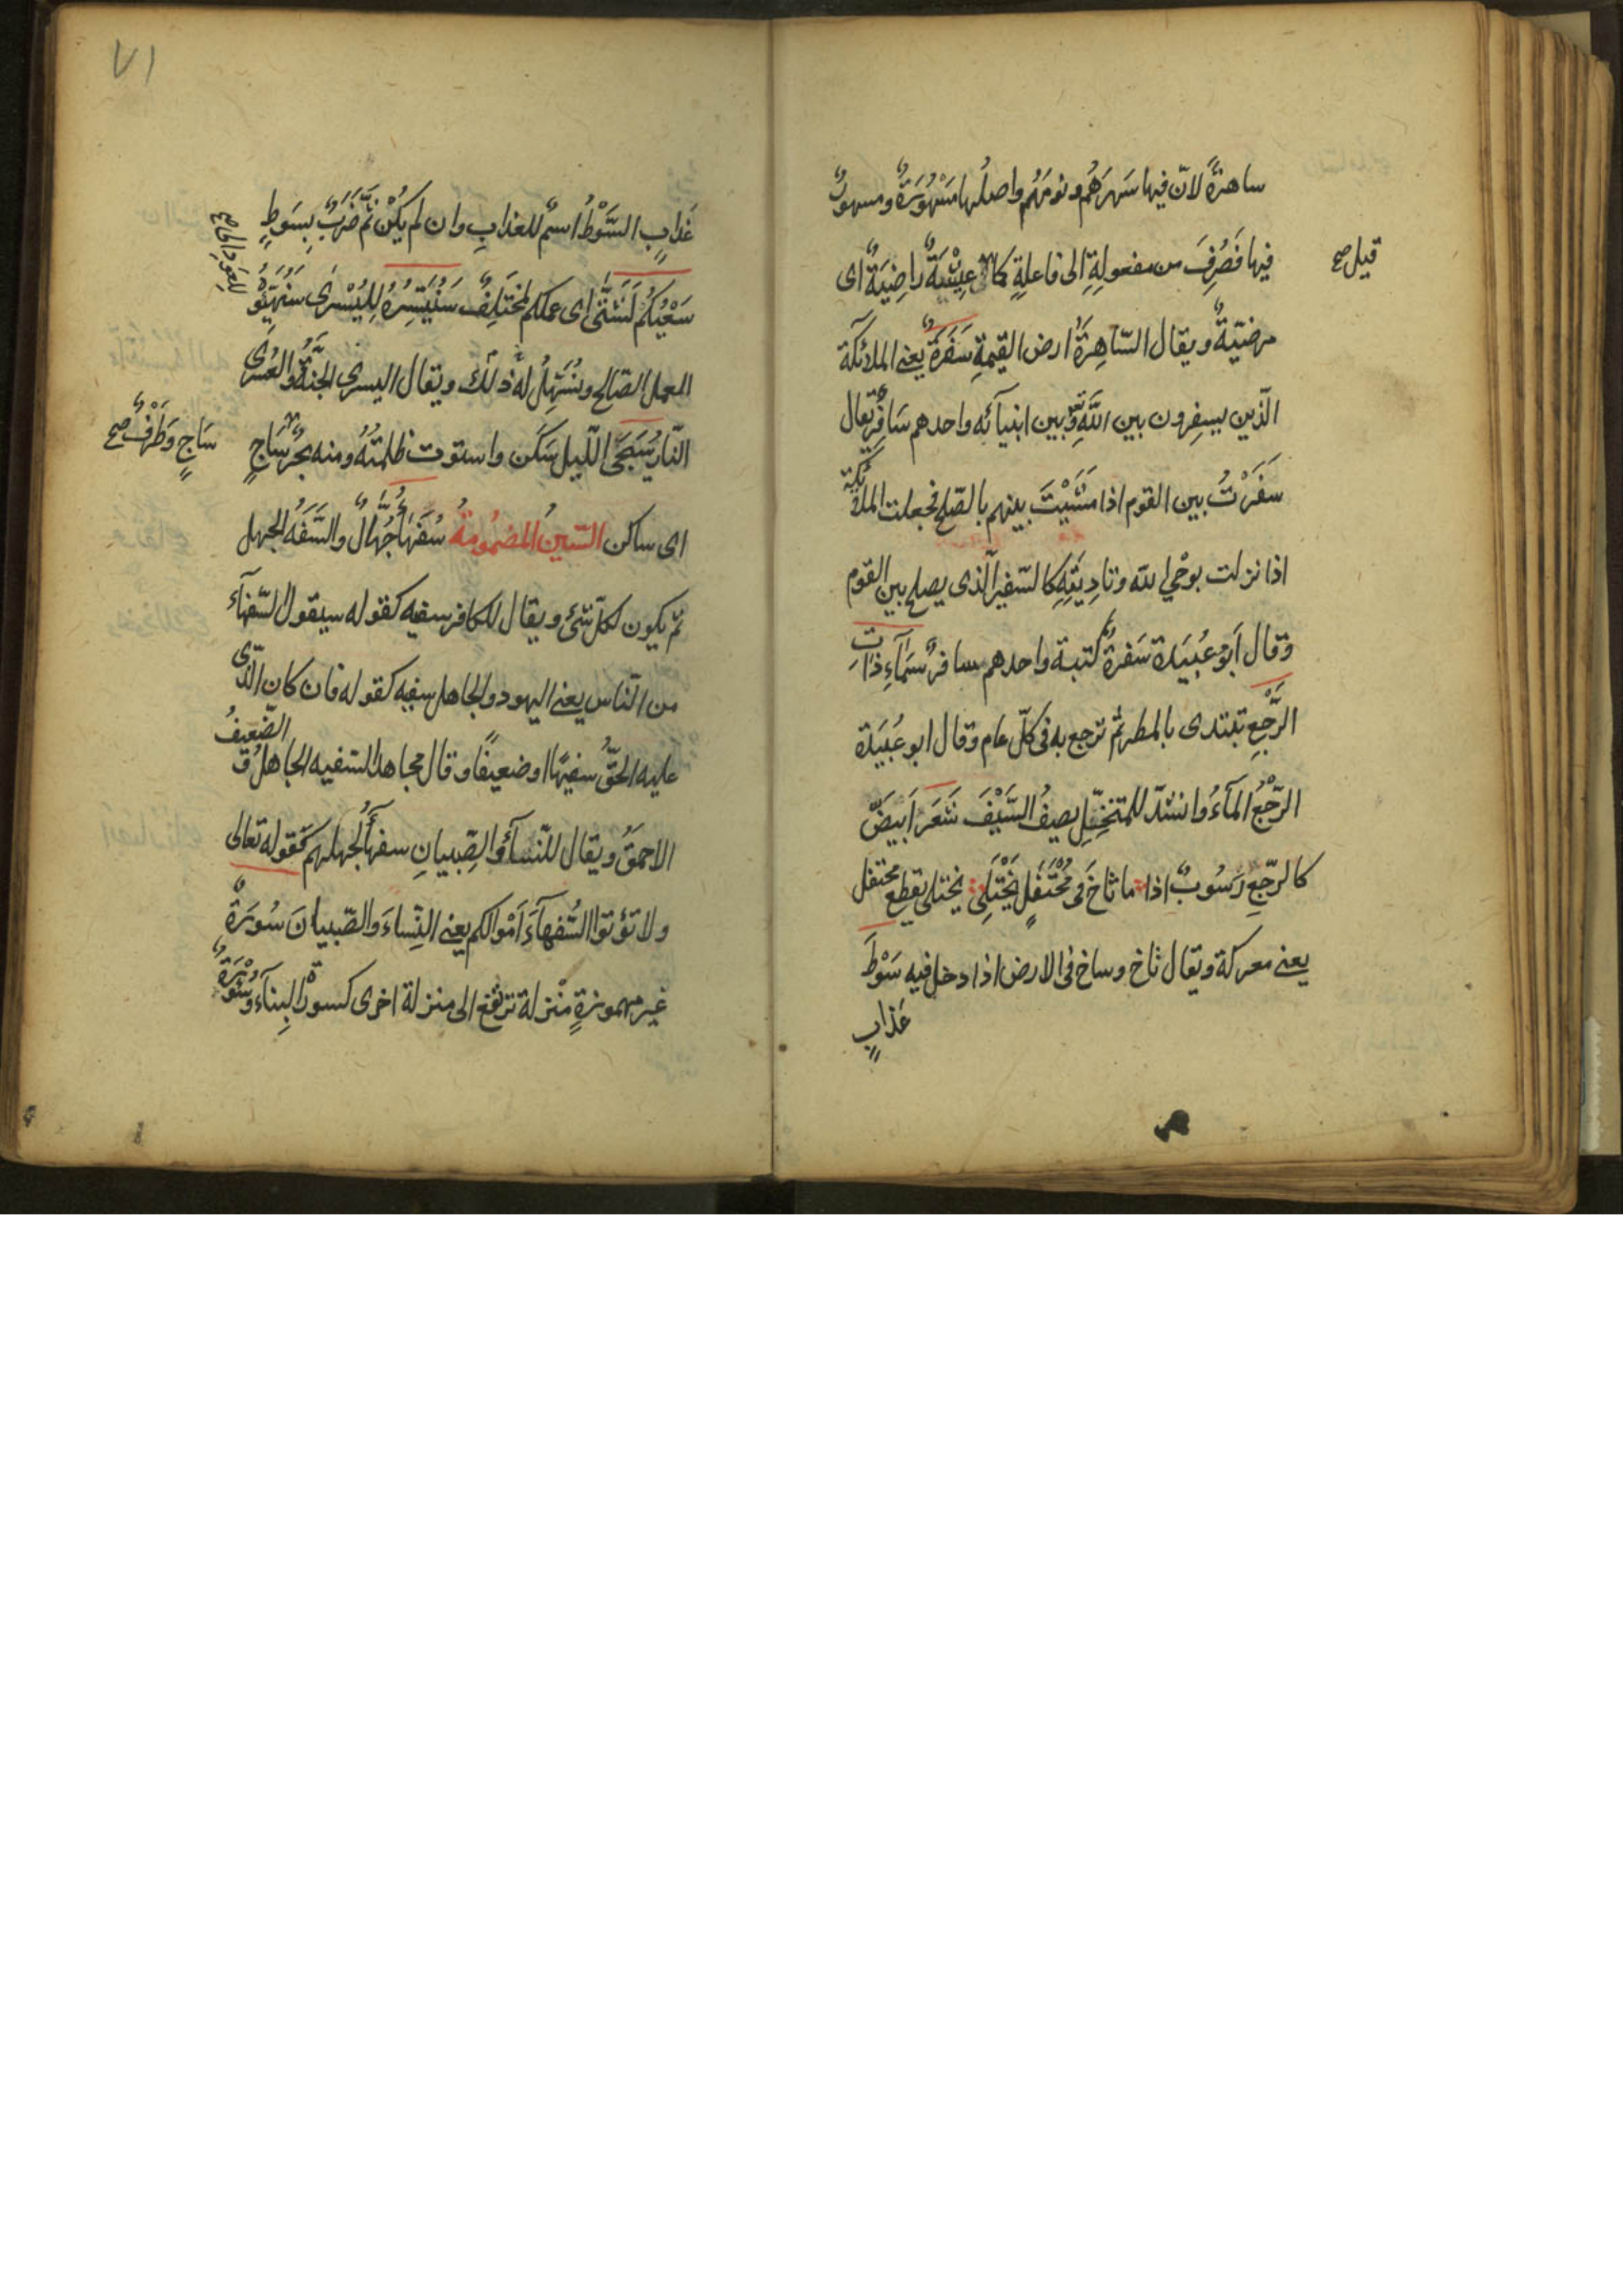 ساهرةً لانّ فيها سَهَرَهُم ونومَهُم واصلُها مَسْهُورَةٌ ومسهورٌ
فيها فَصُرِفَ من مفعولةٍ الى فاعلةٍ كما عِيْشَةٌ رَاضِيَةٌ اى
قيل صح
مرضيّةٌ ويقال السّاهِرَةُ ارض القيٰمةِ سَفَرَةٌ يعنى الملائكة
الّذين يسفِرون بين اللّٰهِ وبين انبيآئه واحدهم سَافِرٌ يقال
سَفَرْتُ بين القوم اذا مَشَيْتَ بينهم بالصّلح فجعلت الملائكة
اذا نزلت بوحْىِ اللّٰه وتادِيَتِهِ كالسّفير الّذى يصلح بين القوم
وقال اَبو عُبَيدة سَفرةٌ كتبة واحدهم سافرٌ سَمَآءِ ذاتِ
الرَّجْعِ تبتدى بالمطر ثم ترجع به فى كلّ عام وقال ابو عُبَيدة
الرّجْعُ المآءُ وانشد للمتنخّل يصِفُ السَّيْفَ شعر اَبيَضَّ
كالرّجْعِ رَسُوبٌ اذا ما ثاخَ فى مُحْتَفَلٍ يَخْتَلِى يختلى يقطع محتفل
يعنى معركة ويقال ثاخ وساخ فى الارض اذا دخل فيه سَوْطَ
عَذابٍ
٧١
عَذابٍ السَّوْطُ اسمٌ للعذابِ وان لم يكُنْ ثَمَّ ضَرْبٌ بِسَوطٍ
سَعْيُكُمْ لَشَتّٰى اى عملكم لمختَلِفٌ سَنُيَسِّرُهُ لِلْيُسْرٰى سَنُهَيِّؤُ
للعود الى صح
العمل الصّالح ونُسَهِّلُ له ذلك ويقال اليسرى الجنَّةُ والعُسْرَى
النّارُ سَجَى اللّيل سَكَن واستوت ظلمَتُهُ ومنه بحرٌ سَاجٍ
سَاجٍ وَطَرْفٌ صح
اى ساكن السّينُ المضمُومةُ سُفَهَآءُ جُهَّالٌ والسَّفَهُ الجهل
ثم يكون لكلّ شئ ويقال للكافر سفيه كقوله سيقول السّفهآء
من النّاس يعنى اليهود والجاهل سفيه كقوله فان كان الّذى
عليه الحقُّ سفيهًا اوضعيفًا وقال مجاهد السّفيه الجاهلُ والضّعيفُ
الاحمقُ ويقال للنّسآءِ والصِّبيانِ سفهآءُ لجهلهم كقوله تعالى
ولا تؤتوا السُّفهآءَ اَمْوالكم يعنى النِّساءَ والصّبيانَ سُورَةٌ
غير مهموزةٍ مَنْزلة ترتفع الى منزلة اخرى كسورةِ البِنآءِ وسُؤْرَةٌ